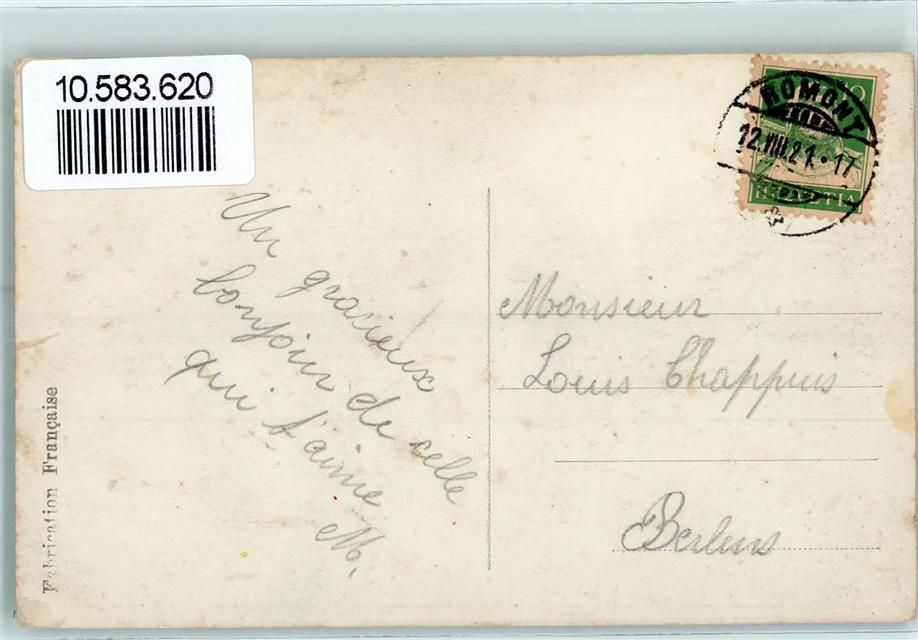 10.583.620
ROMONT
12.VIII.21.-17
HELVETIA
Un gracieux
bonjour de celle
qui t'aime
M.
Monsieur
Louis Chappuis
Berlens
Fabrication Française